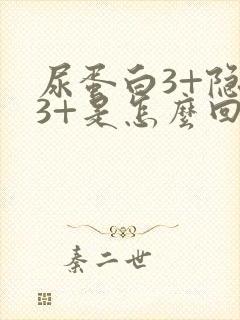 尿蛋白3+隐
3+是怎麼回
秦二世